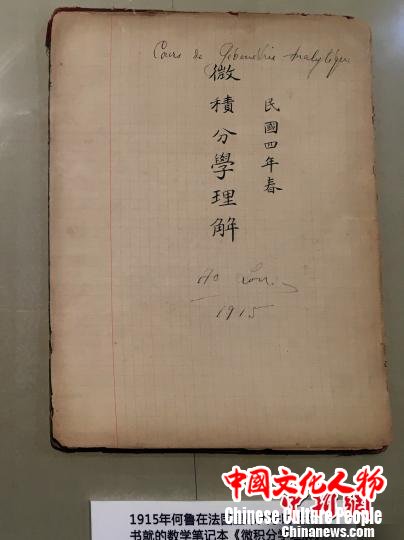 Cours de Géométrie Analytique
微積分學理解
民國四年春
Ho Lou
1915
中国文化人物
Chinese Culture People
Chinanews.com
1915年何鲁在法
书就的数学笔记本《微积分学